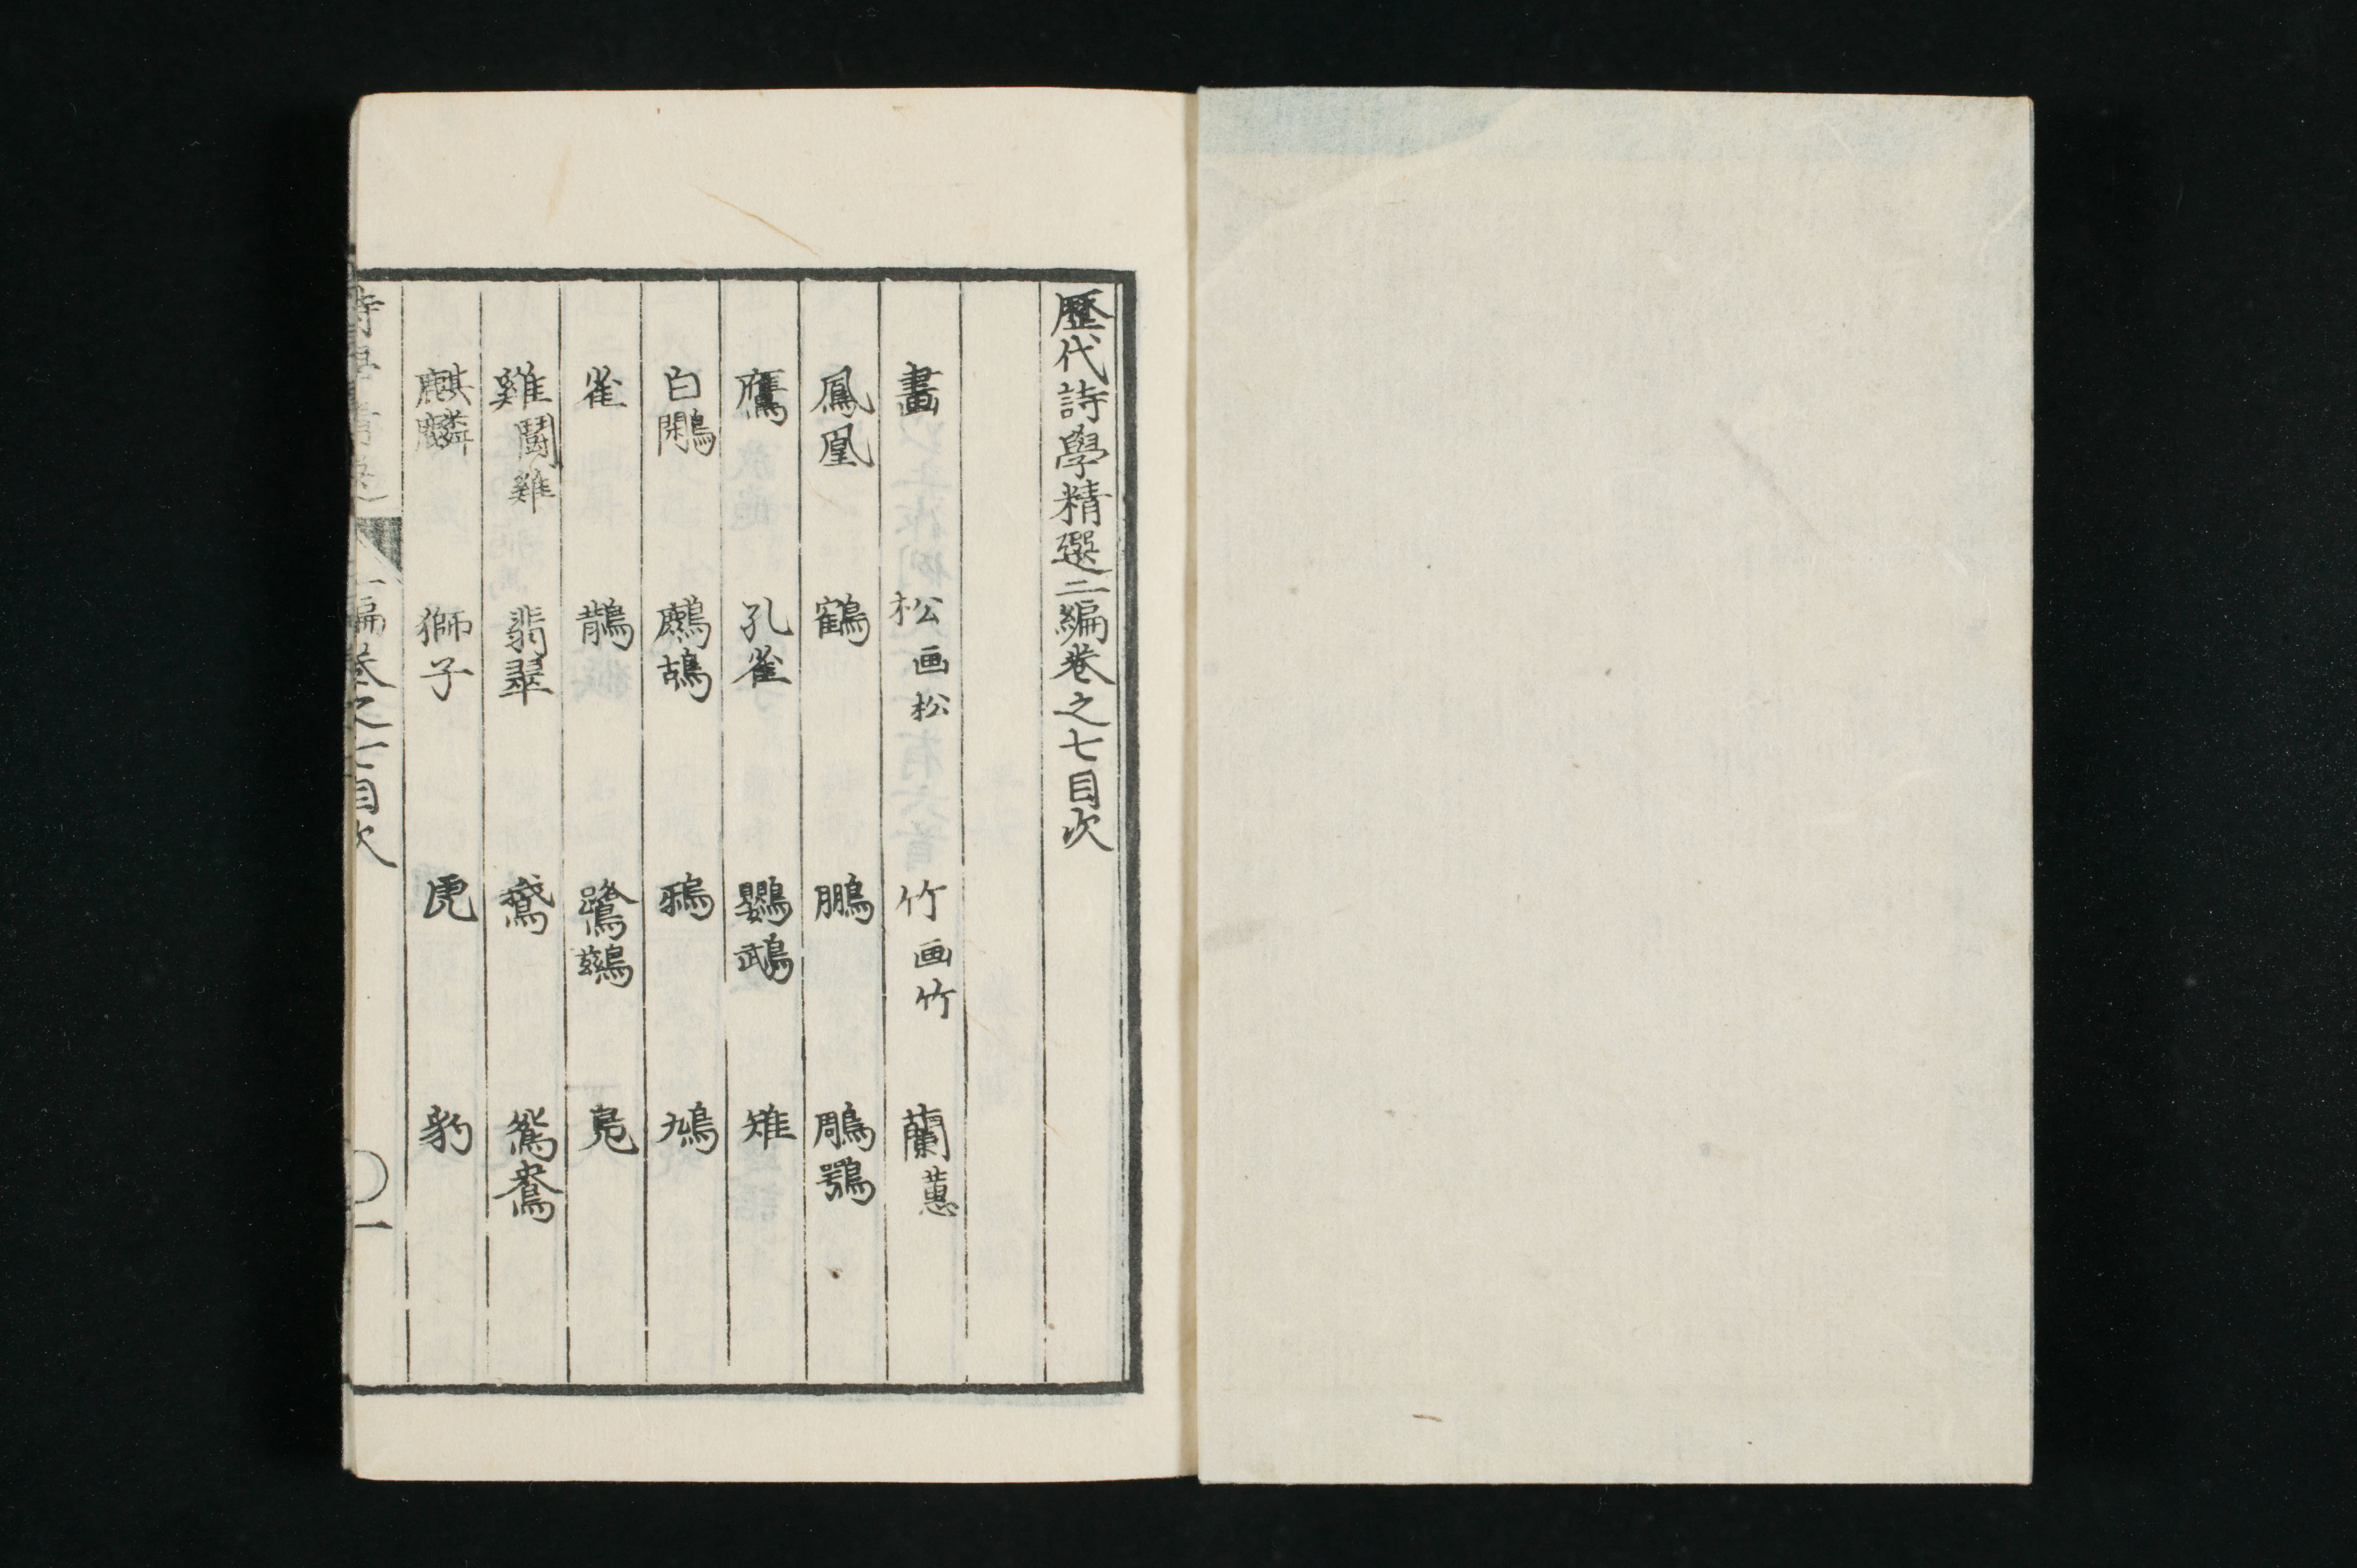 歷代詩學精選二編卷之七目次
畫 松 画松 竹 画竹 蘭 蕙
鳳凰 鶴 鵬 鵰鶚
鷹 孔雀 鸚鵡 雉
白鷴 鷓鴣 鴉 鳩
雀 鵲 鷺鷥 鳧
雞 鬪雞 翡翠 鵞 鴛鴦
麒麟 獅子 虎 豹
二編卷之七目次 一